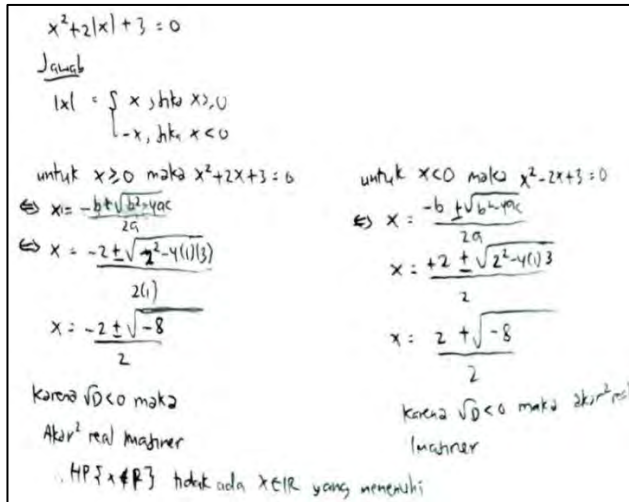 x²+2|x|+3=0
Jawab
|x| = { x, jika x≥0
-x, jika x<0
untuk x≥0 maka x²+2x+3=0
⇔ x = -b±√b²-4ac / 2a
⇔ x = -2±√2²-4(1)(3) / 2(1)
x = -2±√-8 / 2
karena √D<0 maka
Akar² real Imajiner
untuk x<0 maka x²-2x+3=0
⇔ x = -b±√b²-4ac / 2a
x = +2±√2²-4(1)3 / 2
x = 2+√-8 / 2
karena √D<0 maka akar² real
Imajiner
∴ HP {x∉R} tidak ada x∈IR yang memenuhi